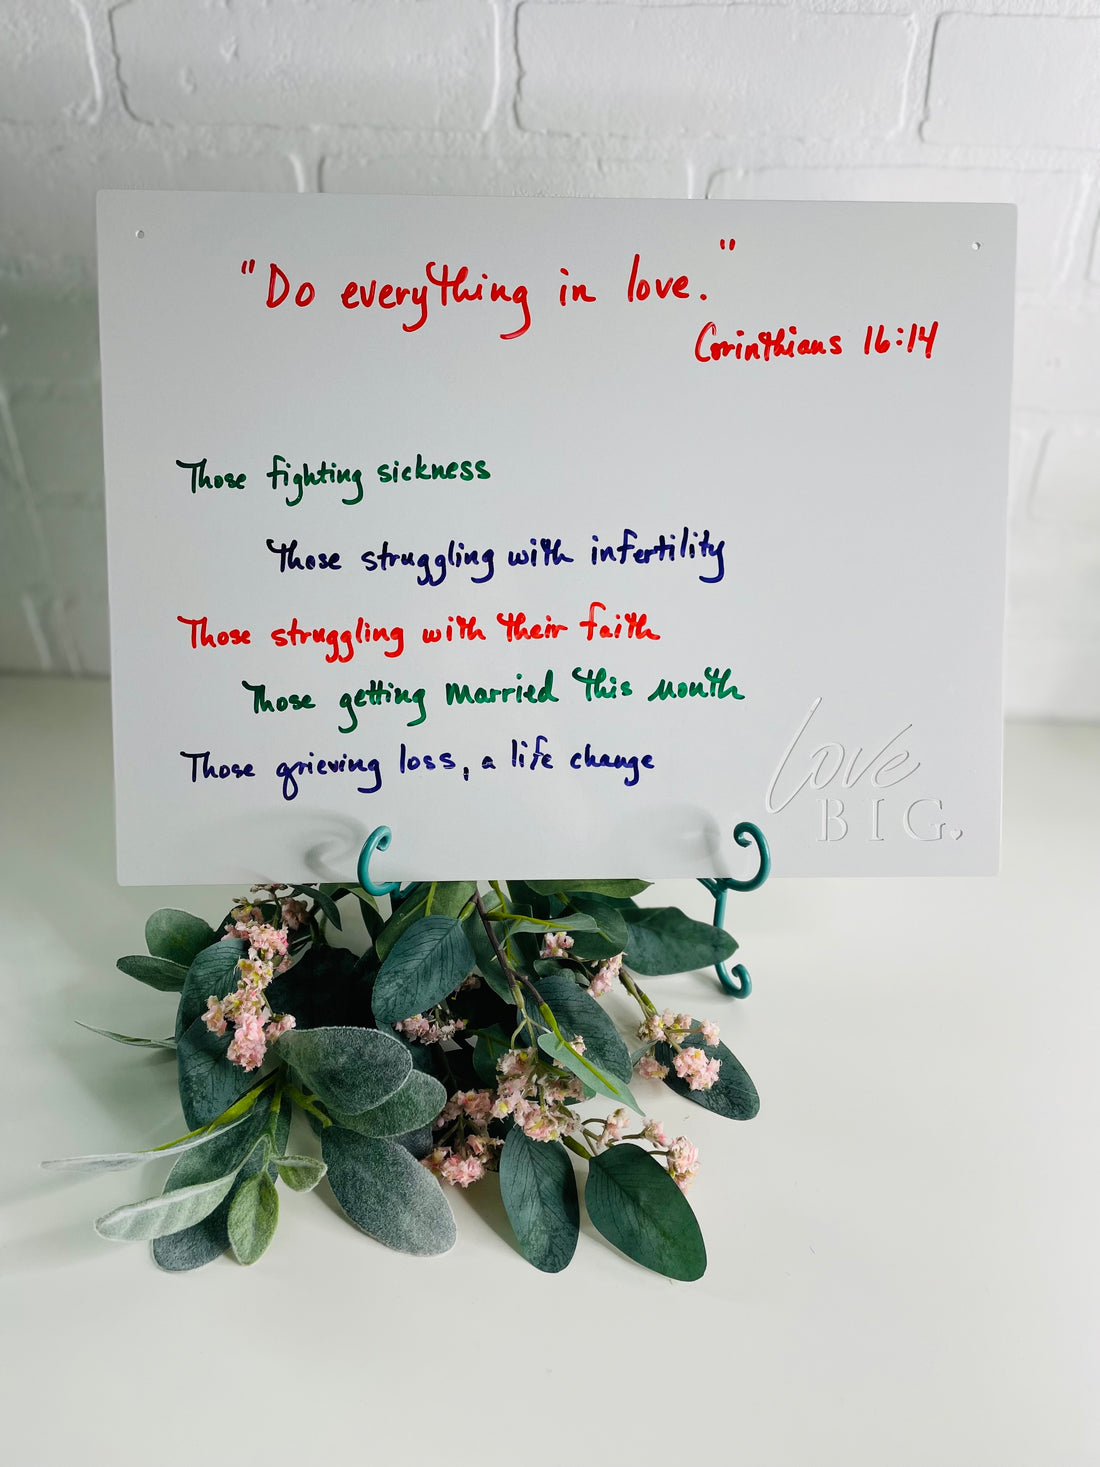 "Do everything in love."
Corinthians 16:14
Those fighting sickness
Those struggling with infertility
Those struggling with their faith
Those getting married this month
Those grieving loss, a life change
love
BIG.